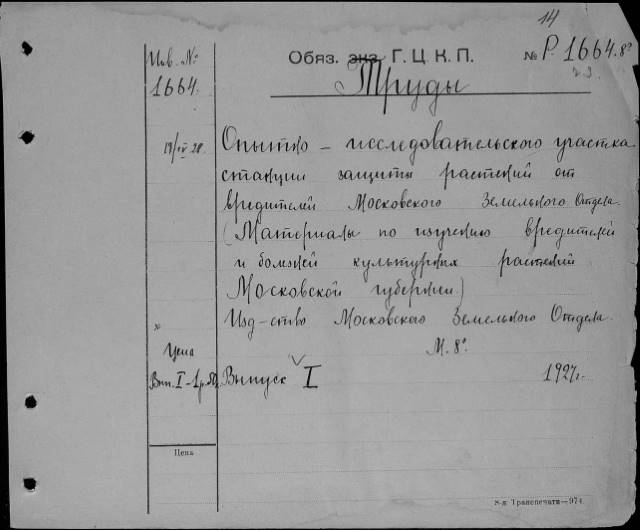 14
Инв. №
1664.
Обяз. экз. Г.Ц.К.П.
№ Р. 1664.8º
Труды
18/IV 28.
Опытно - исследовательского участка
станции защиты растений от
вредителей Московского Земельного Отдела.
(Материалы по изучению вредителей
и болезней культурных растений
Московской губернии.)
Изд-ство Московского Земельного Отдела.
М. 8º
Цена
Вып. I - 1 р. 50
Выпуск I
1927 г.
Цена
8-я Транспечати—974.